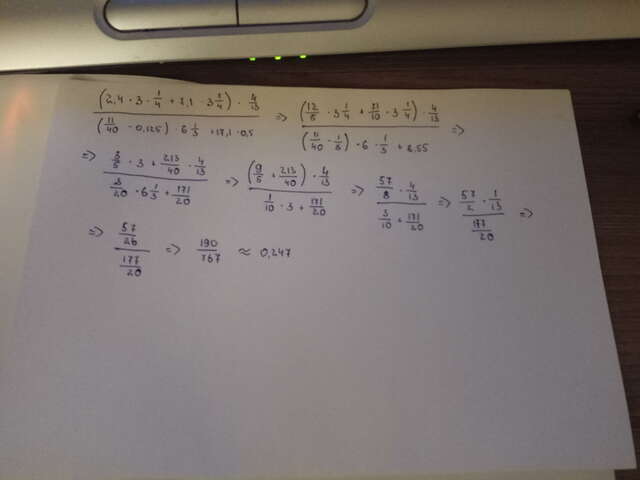 (2,4 · 3 · 1/4 + 2,1 · 3 1/4) · 4/13 / (11/40 - 0,125) · 6 1/3 + 17,1 · 0,5 => (12/5 · 3 1/4 + 21/10 · 3 1/4) · 4/13 / (11/40 - 1/8) · 6 · 1/3 + 8,55 =>
=> 3/5 · 3 + 213/40 · 4/13 / 3/20 · 6 1/3 + 171/20 => (9/5 + 213/40) · 4/13 / 1/10 · 3 + 171/20 => 57/8 · 4/13 / 3/10 + 171/20 => 57/2 · 1/13 / 177/20 =>
=> 57/26 / 177/20 => 190/767 ≈ 0,247